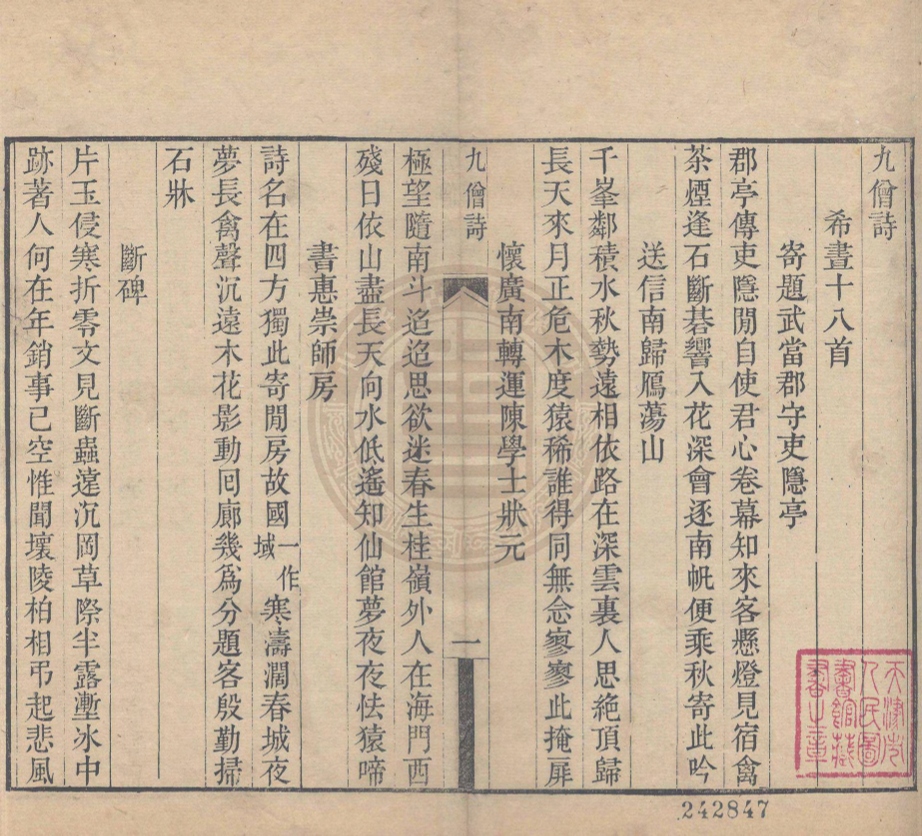 九僧詩
希晝十八首
寄題武當郡守吏隱亭
郡亭傳吏隱閒自使君心卷幕知來客懸燈見宿禽
茶煙逢石斷碁響入花深會逐南帆便乘秋寄此吟
送信南歸鴈蕩山
千峯鄰積水秋勢遠相依路在深雲裏人思絕頂歸
長天來月正危木度猿稀誰得同無念寥寥此掩扉
懷廣南轉運陳學士狀元
九僧詩
一
極望隨南斗迢迢思欲迷春生桂嶺外人在海門西
殘日依山盡長天向水低遙知仙館夢夜夜怯猿啼
書惠崇師房
詩名在四方獨此寄閒房故國一作域寒濤濶春城夜
夢長禽聲沉遠木花影動囘廊幾爲分題客殷勤掃
石牀
斷碑
片玉侵寒折零文見斷蟲遠沉岡草際半露壍冰中
跡著人何在年銷事已空惟聞壞陵柏相弔起悲風
天津市
人民圖
書館藏
書之章
242847